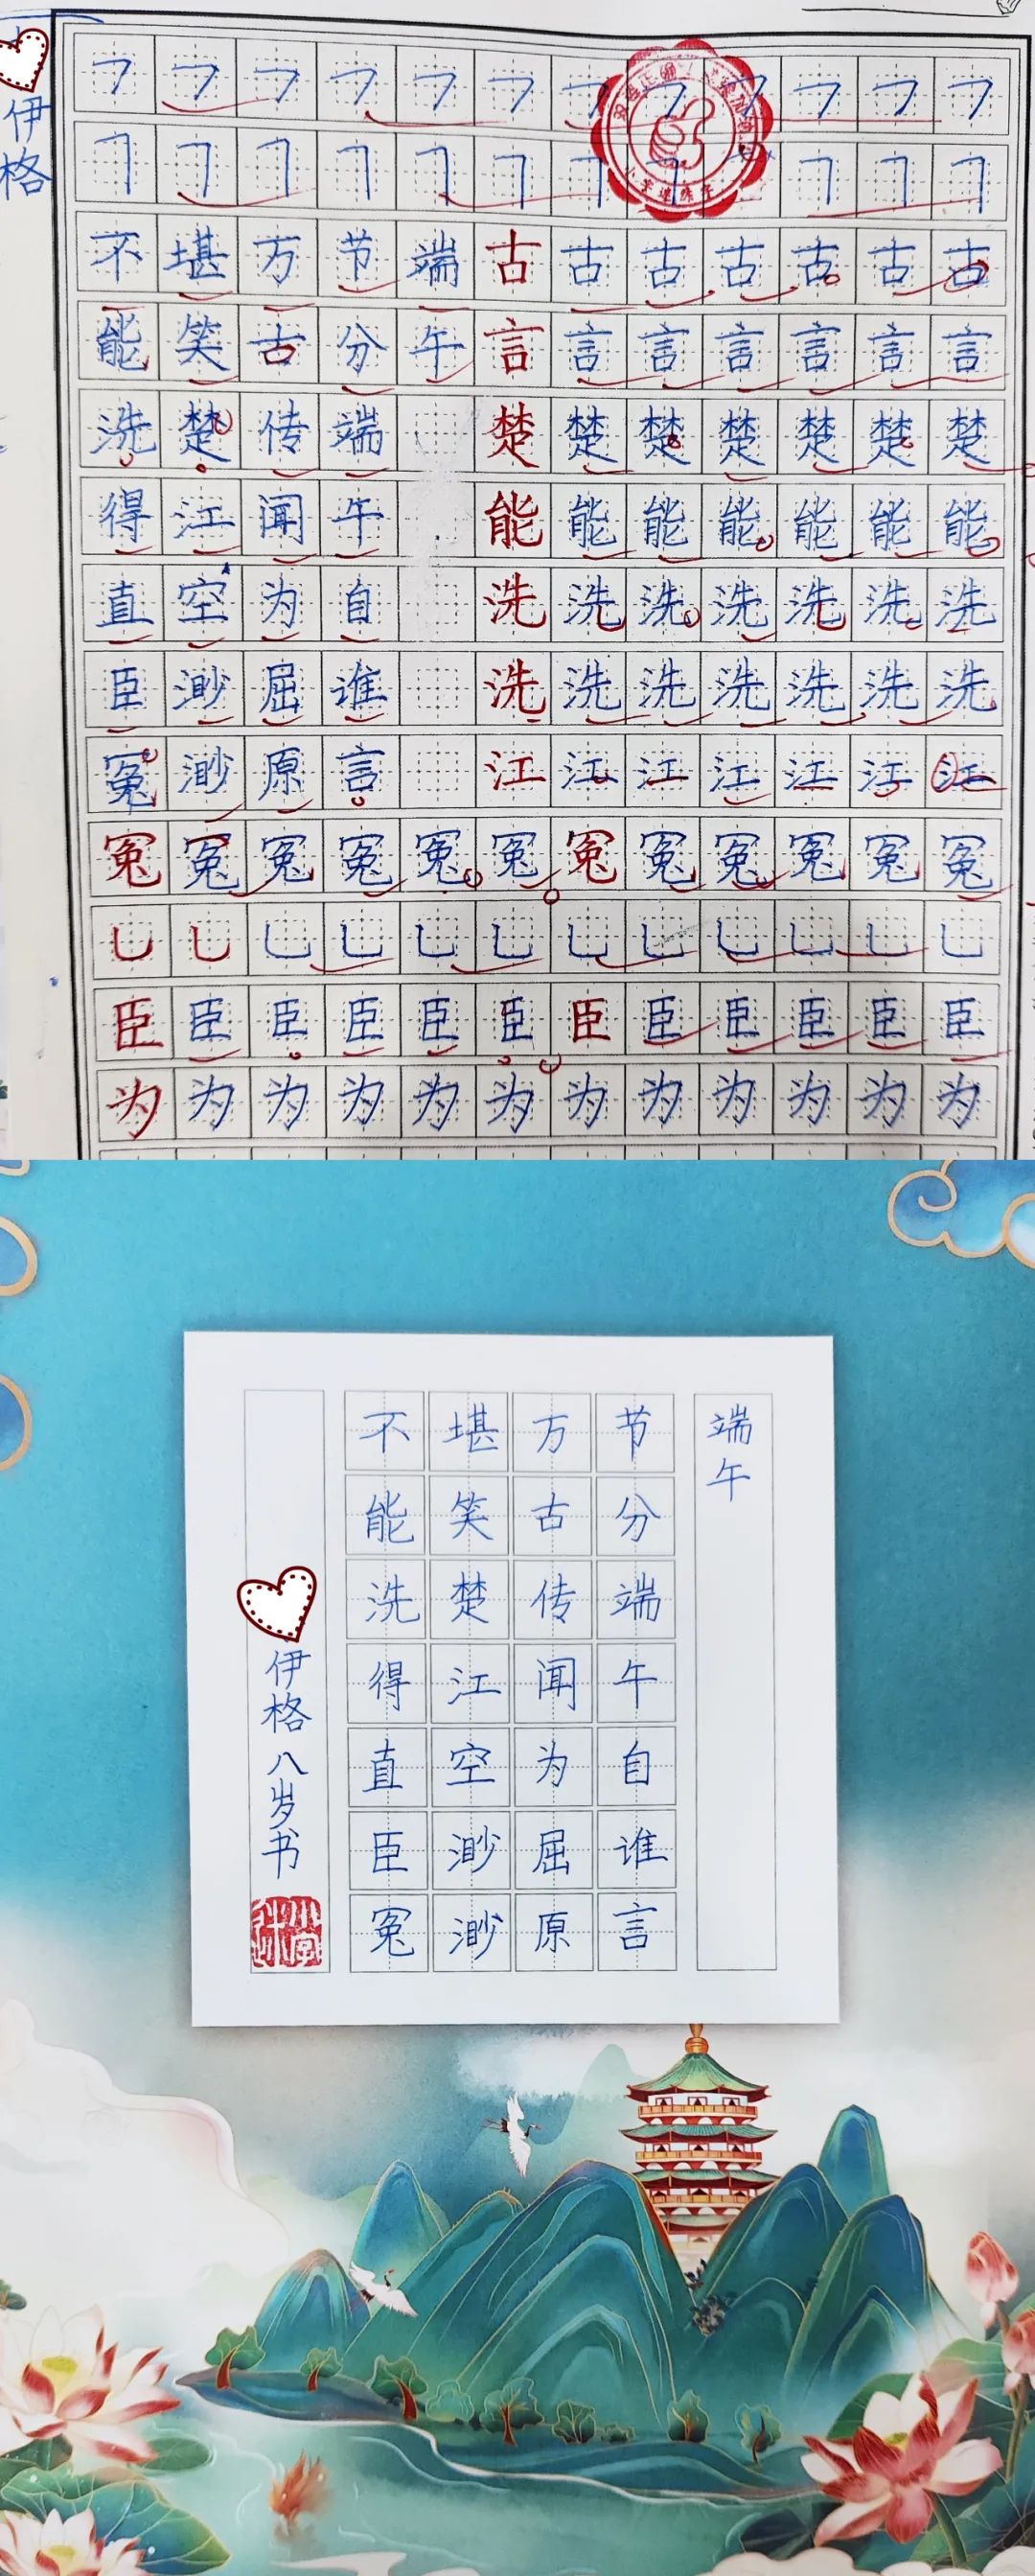 伊格
フ フ フ フ フ フ フ フ フ フ フ フ
㇕ ㇕ ㇕ ㇕ ㇕ ㇕ ㇕ ㇕ ㇕ ㇕ ㇕ ㇕
不堪万节端古古古古古古古
能笑古分午言言言言言言言
洗楚传端楚楚楚楚楚楚楚
得江闻午能能能能能能能
直空为自洗洗洗洗洗洗洗
臣渺屈谁洗洗洗洗洗洗洗
冤渺原言江江江江江江江
冤冤冤冤冤冤冤冤冤冤冤冤
乚乚乚乚乚乚乚乚乚乚乚乚
臣臣臣臣臣臣臣臣臣臣臣臣
为为为为为为为为为为为为
端午
节分端午自谁言
万古传闻为屈原
堪笑楚江空渺渺
不能洗得直臣冤
伊格八岁书